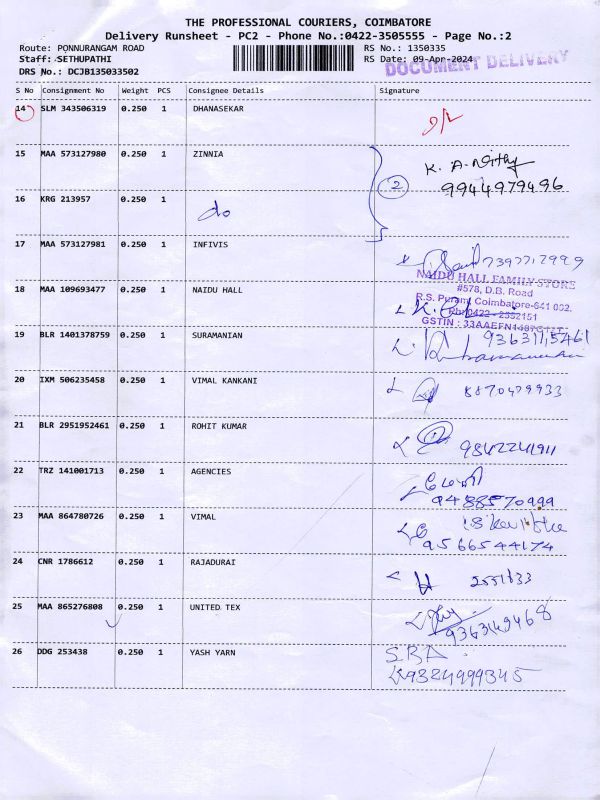 THE PROFESSIONAL COURIERS, COIMBATORE
Delivery Runsheet - PC2 - Phone No.:0422-3505555 - Page No.:2
Route: PONNURANGAM ROAD RS No.: 1350335
Staff: SETHUPATHI RS Date: 09-Apr-2024
DOCUMENT DELIVERY
DRS No.: DCJB135033502
S No Consignment No Weight PCS Consignee Details Signature
14 SLM 343506319 0.250 1 DHANASEKAR
15 MAA 573127980 0.250 1 ZINNIA
K. A.
2 9944979496
16 KRG 213957 0.250 1 do
17 MAA 573127981 0.250 1 INFIVIS
7397717999
NAIDU HALL FAMILY STORE
18 MAA 109693477 0.250 1 NAIDU HALL #578, D.B. Road
R.S. Puram, Coimbatore-641 002.
Ph: 0422 - 2552151
GSTIN :
19 BLR 1401378759 0.250 1 SURAMANIAN 9363115461
20 IXM 506235458 0.250 1 VIMAL KANKANI 8870479933
21 BLR 2951952461 0.250 1 ROHIT KUMAR 9842241911
22 TRZ 141001713 0.250 1 AGENCIES
9488570999
23 MAA 864780726 0.250 1 VIMAL
9566544174
24 CNR 1786612 0.250 1 RAJADURAI 2551833
25 MAA 865276808 0.250 1 UNITED TEX
9363149468
26 DDG 253438 0.250 1 YASH YARN
9324999345